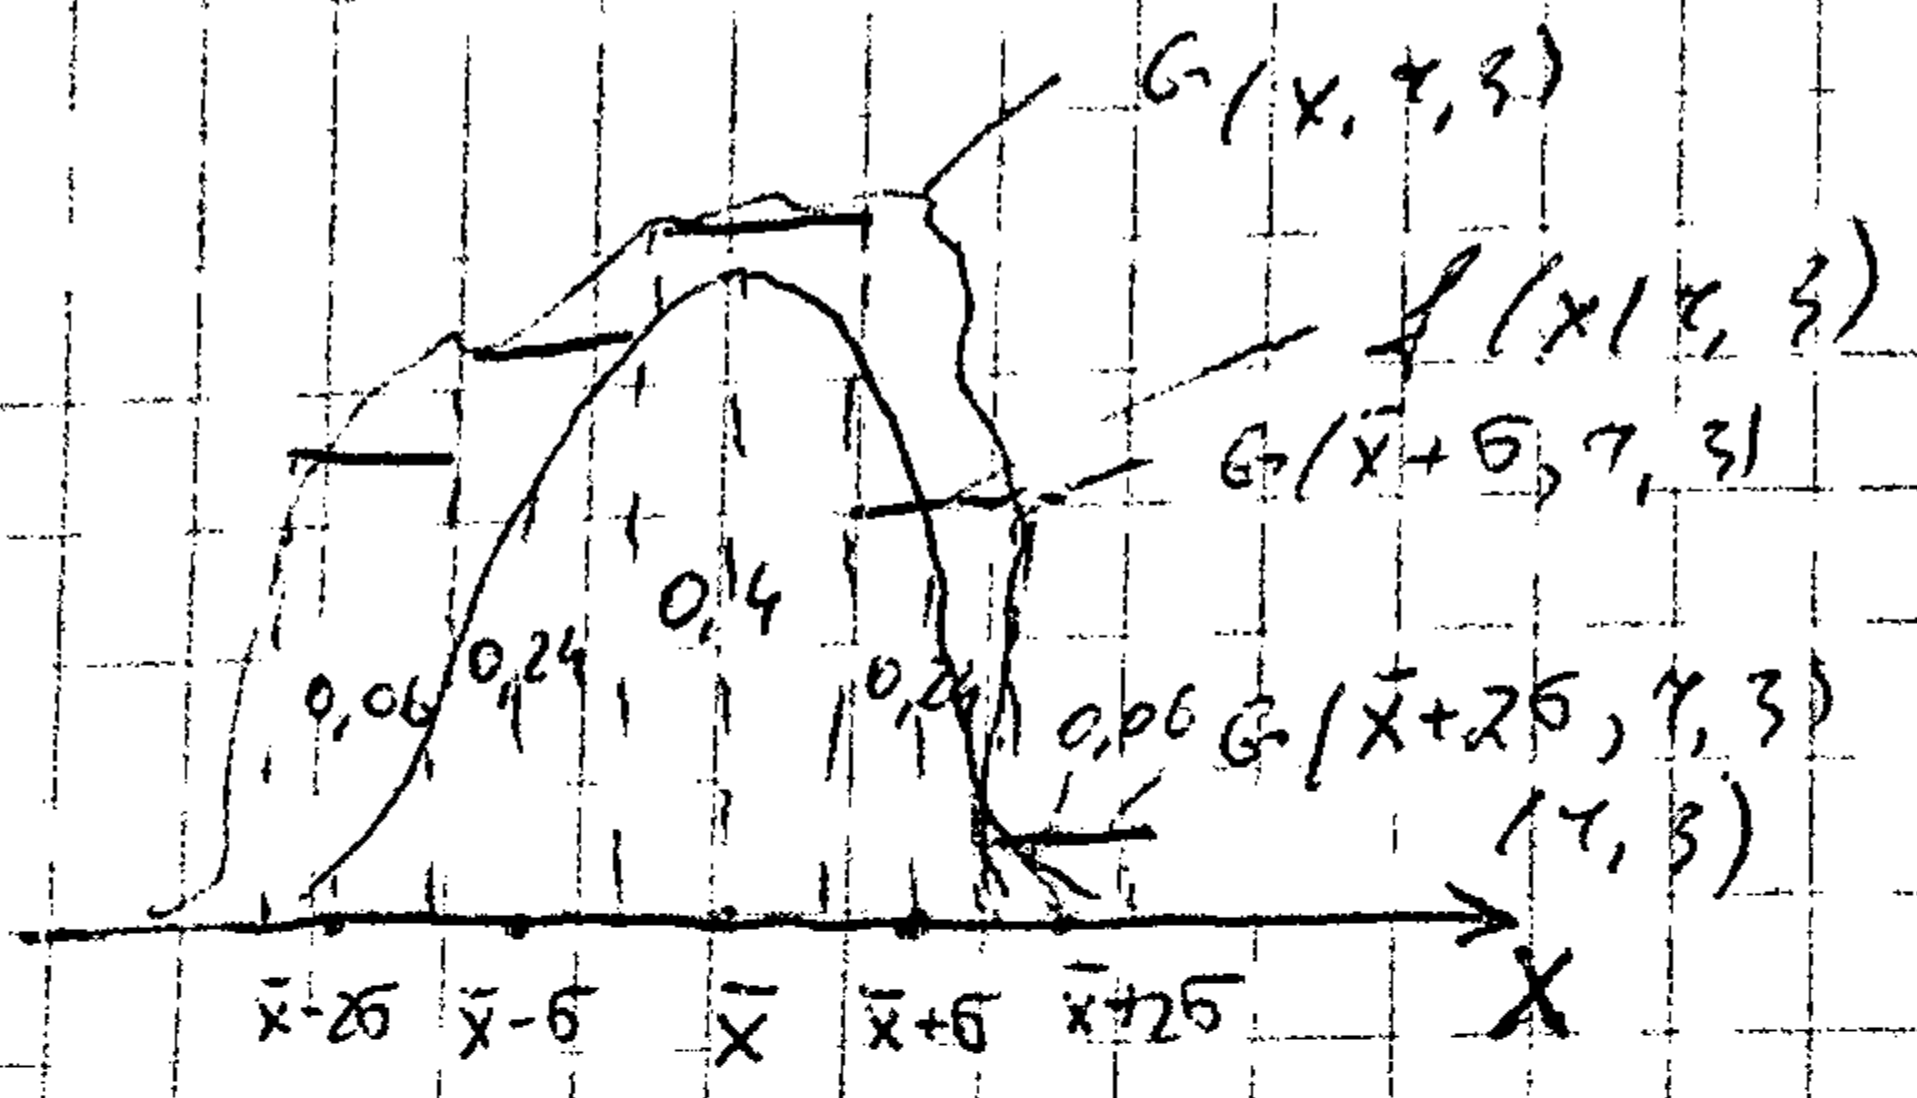 G(x, τ, z)
f(x/τ, z)
G(x̄+σ, τ, z)
0,4
0,06 0,24 0,24 0,06 G(x̄+2σ, τ, z)
(τ, z)
x̄-2σ x̄-σ x̄ x̄+σ x̄+2σ X